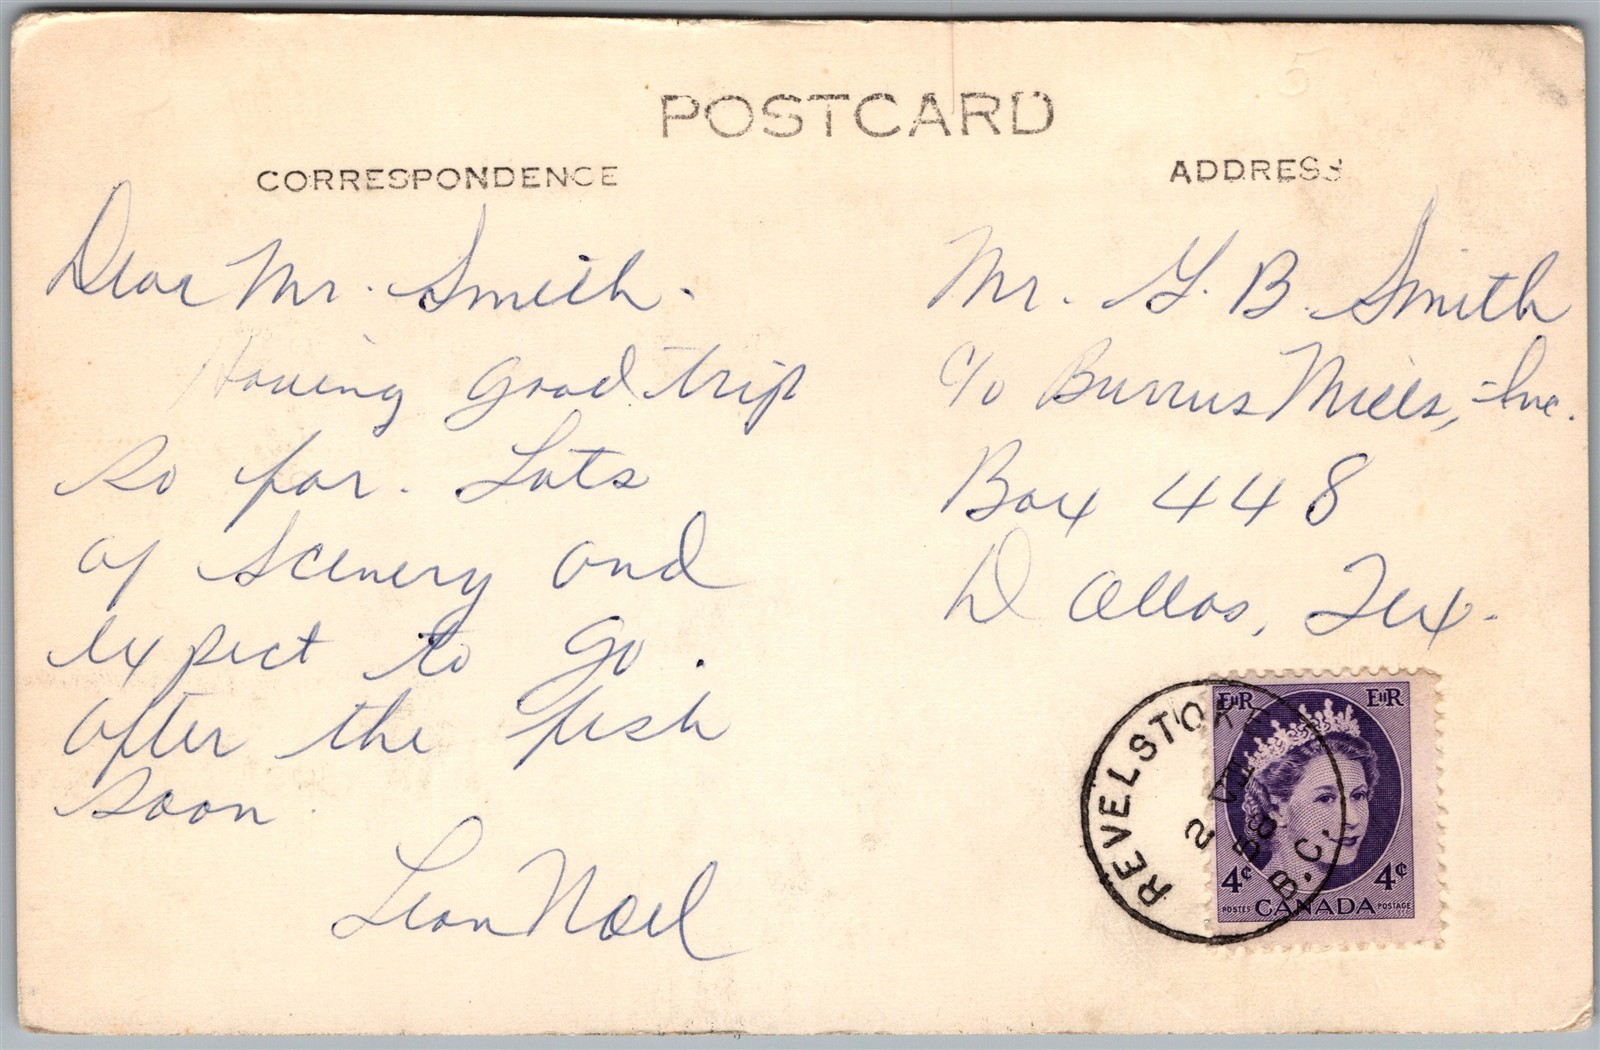 POSTCARD
CORRESPONDENCE
Dear Mr. Smith.
Having good trip
so far. Lots
of scenery and
expect to go.
after the fish
soon.
Leon Noel
ADDRESS
Mr. G. B. Smith
c/o Burrus Mills, Inc.
Box 448
Dallas, Tex.
REVELSTOKE
2 VII
58
B.C.
EIIR EIIR
4¢ 4¢
POSTES CANADA POSTAGE
5